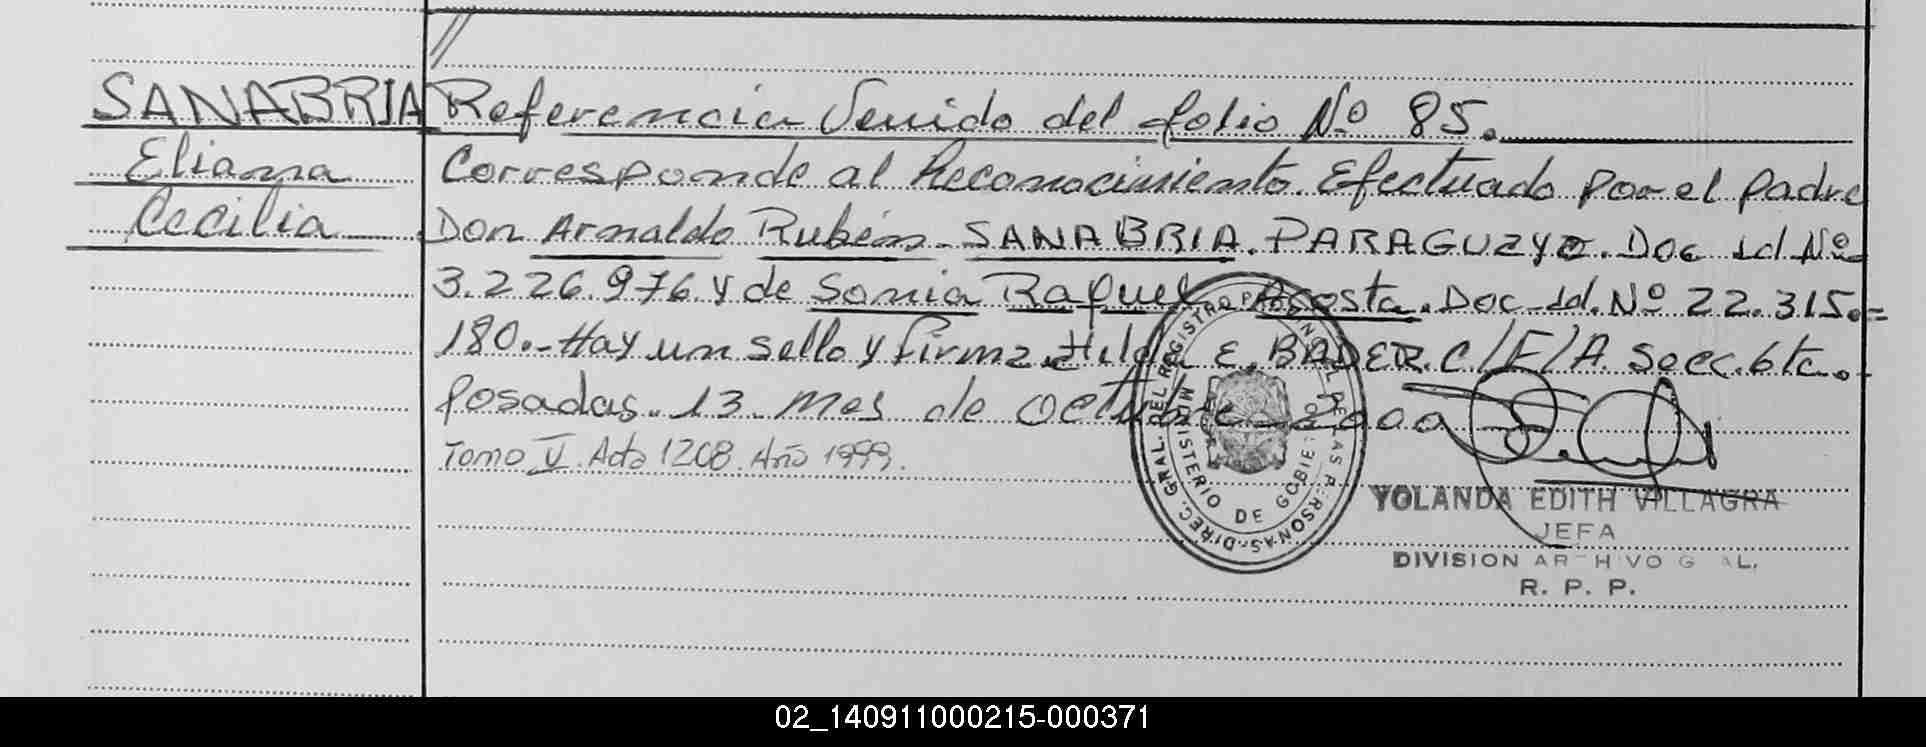 SANABRIA
Eliana
Cecilia
Referencia Venido del folio Nº 85.
Corresponde al Reconocimiento Efectuado por el padre
Don Arnaldo Rubén SANABRIA. PARAGUAYO. Doc Id Nº
3.226.976 y de Sonia Raquel Acosta. Doc. Id. Nº 22.315.=
180.- Hay un sello y firma Hilda E. BADER. C/F/A. Secc. 6ta.
Posadas. 13 mes de octubre 2000
Tomo V. Acta 1208. Año 1999.
DIREC. GRAL. DEL REGISTRO PROVINCIAL DE LAS PERSONAS
MINISTERIO DE GOBIERNO
YOLANDA EDITH VILLAGRA
JEFA
DIVISION ARCHIVO GRAL.
R. P. P.
02_140911000215-000371